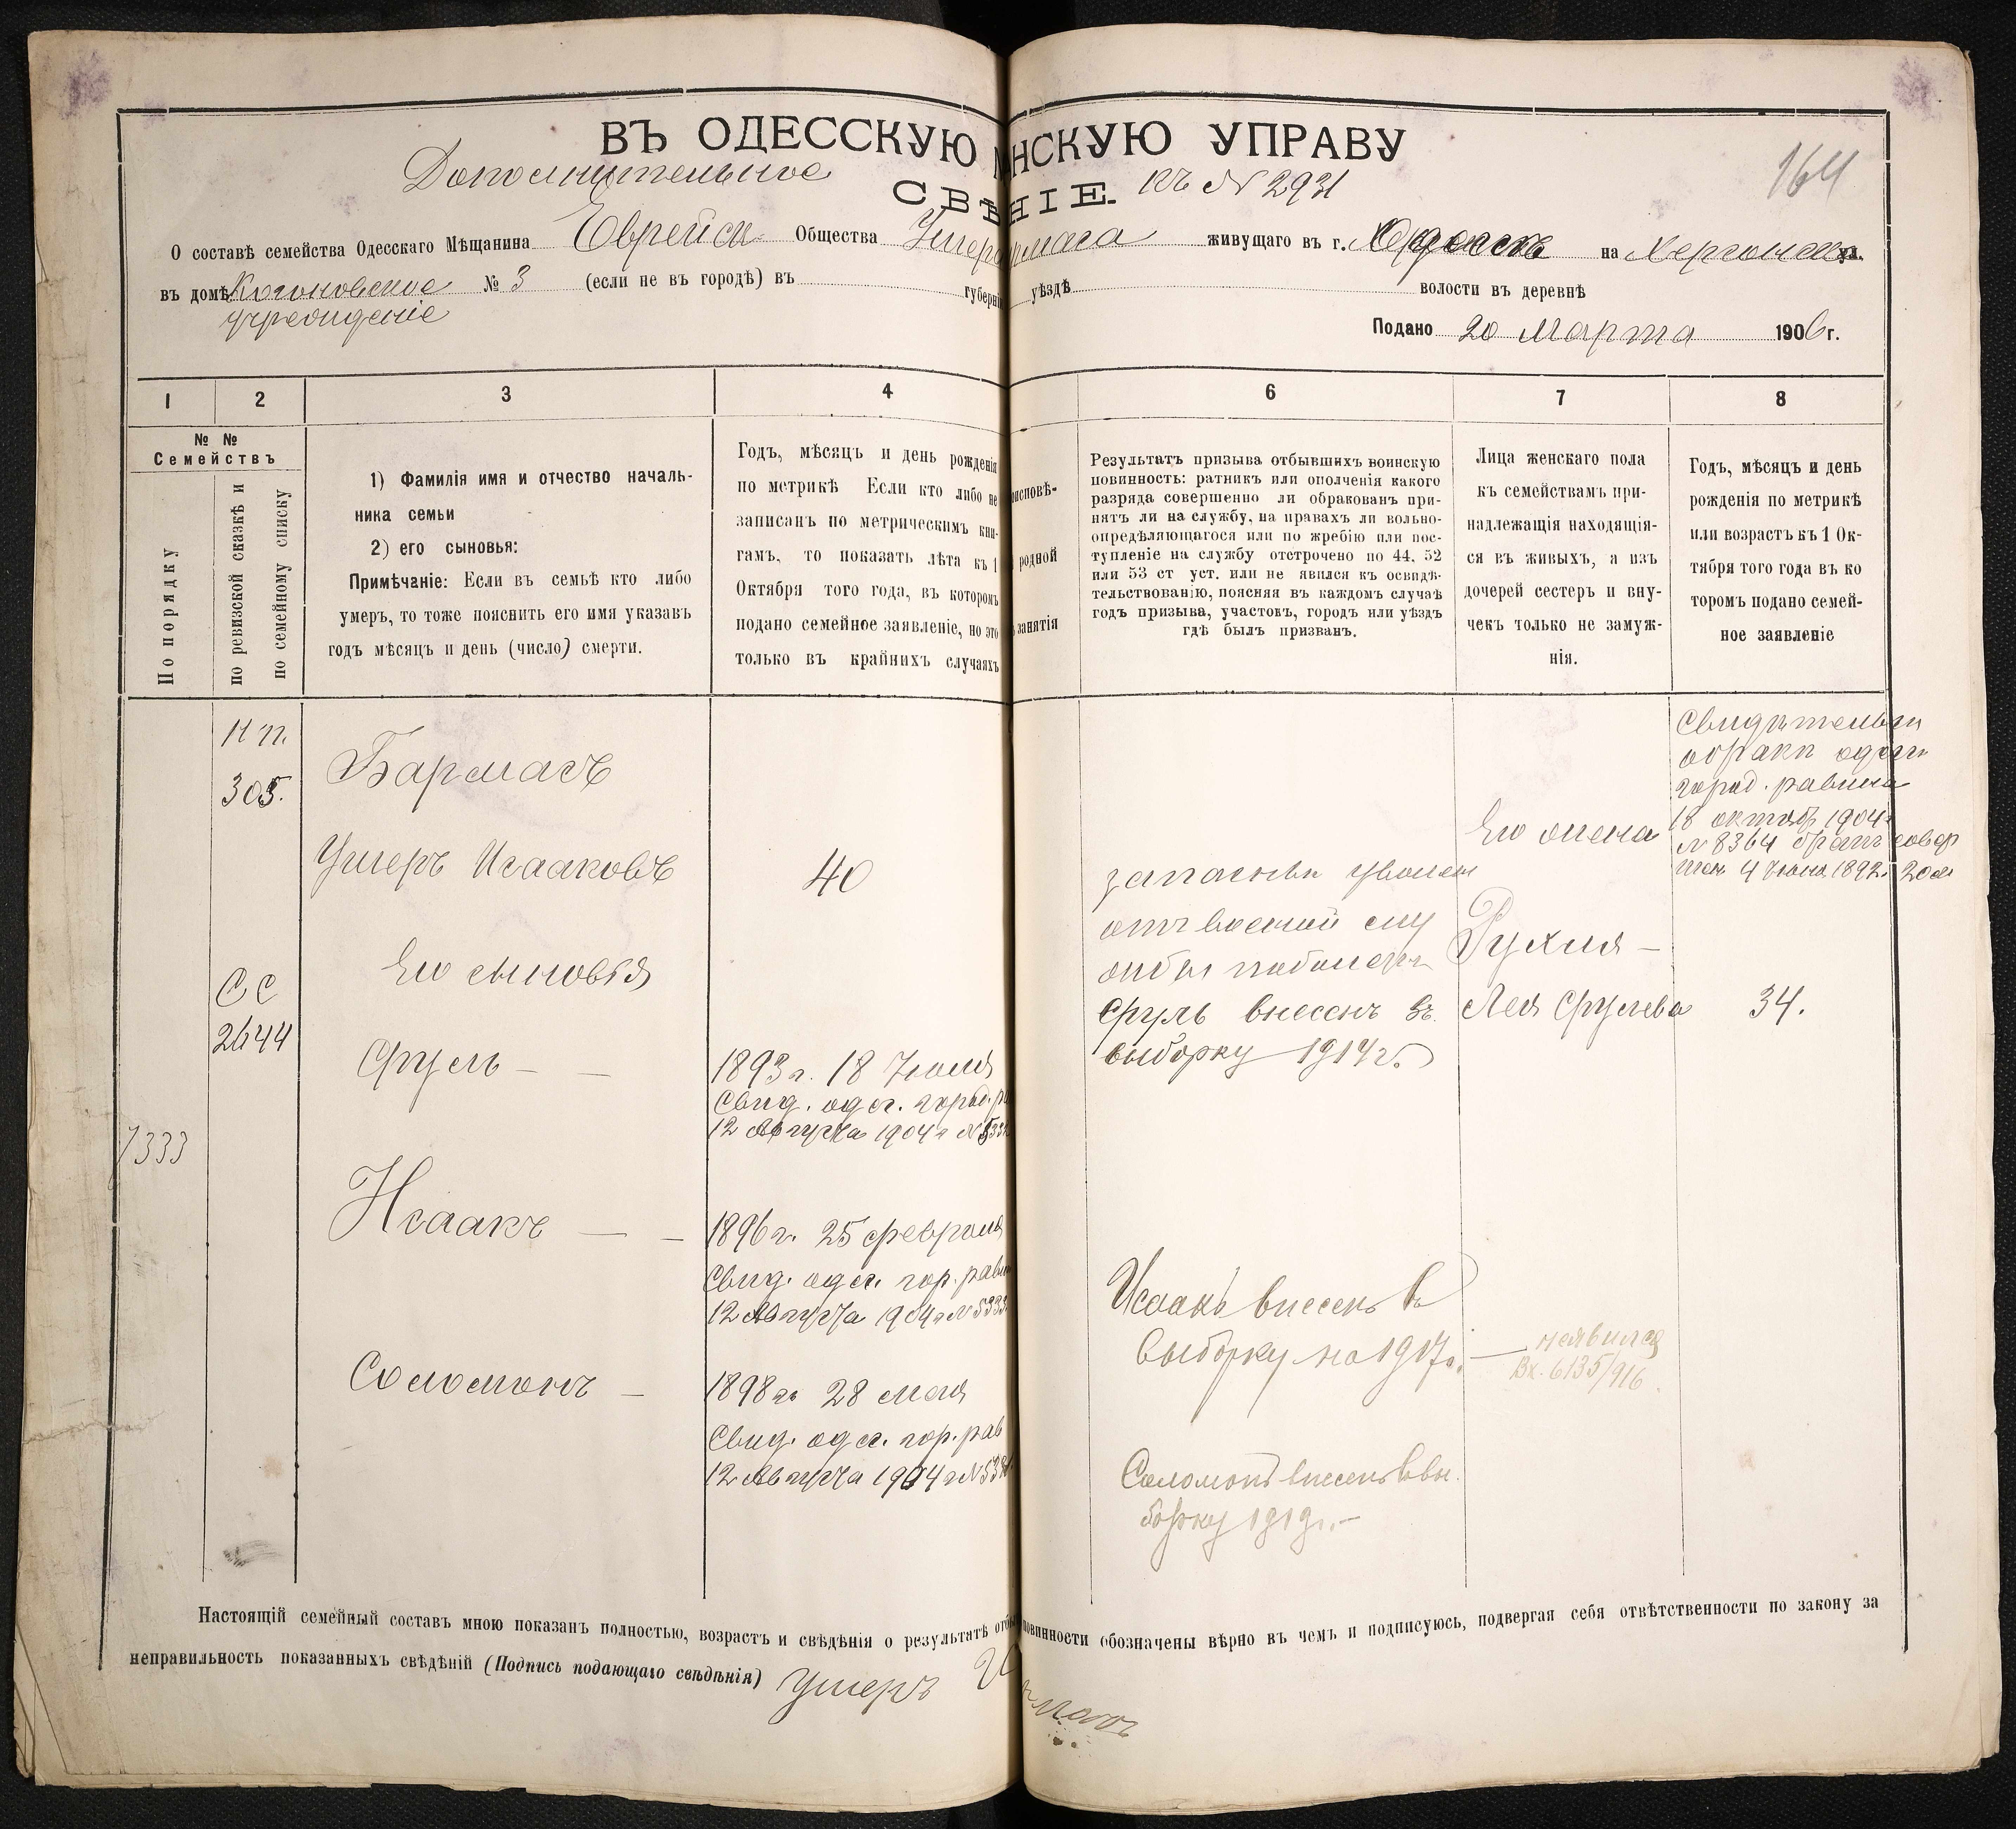 ВЪ ОДЕССКУЮ НСКУЮ УПРАВУ
Дополнительное
СВѢНІЕ. къ № 2931
164
О составѣ семейства Одесскаго Мѣщанина Еврейск Общества Ушера маса живущаго въ г. на
въ домѣ Когоновское № 3 (если не въ городѣ) въ губерні уѣздѣ волости въ деревнѣ
учреждение
Подано 20 Марта 1906 г.
1 2 3 4 6 7 8
№ №
Семействъ
По порядку
по ревизской сказкѣ и
по семейному списку
1) Фамилія имя и отчество началь-
ника семьи
2) его сыновья:
Примѣчаніе: Если въ семьѣ кто либо
умеръ, то тоже пояснить его имя указавъ
годъ мѣсяцъ и день (число) смерти.
Годъ, мѣсяцъ и день рожденія
по метрикѣ Если кто либо не
записанъ по метрическимъ кни-
гамъ, то показать лѣта къ 1
Октября того года, въ которомъ
подано семейное заявленіе, но это
только въ крайнихъ случаяхъ
оисповѣ-
родной
занятія
Результатъ призыва отбывшихъ воинскую
повинность: ратникъ или ополченія какого
разряда совершенно ли обракованъ при-
нятъ ли на службу, на правахъ ли вольно-
опредѣляющагося или по жребію или пос-
тупленіе на службу отстрочено по 44, 52
или 53 ст уст. или не явился къ освидѣ-
тельствованію, поясняя въ каждомъ случаѣ
годъ призыва, участокъ, городъ или уѣздъ
гдѣ былъ призванъ.
Лица женскаго пола
къ семействамъ при-
надлежащія находящія-
ся въ живыхъ, а изъ
дочерей сестеръ и вну-
чекъ только не замуж-
нія.
Годъ, мѣсяцъ и день
рожденія по метрикѣ
или возрастъ къ 1 Ок-
тября того года въ ко
торомъ подано семей-
ное заявленіе
305.
Бармасъ
Ушеръ Исааковъ
40
запасный уволен
отъ военной слу
жбы
Сруль внесенъ въ
выборку 1914 г.
Его жена
Рухля —
Лея Срулева
34.
Свидѣтельств
о бракѣ одесск
город. равина
18 октяб 1904 г
№ 8364 бракъ совер
шен 4 1892 г. 20
Его сыновья
СС
2644
Сруль — —
1893 г. 18 Іюля
Свид. одес. город. р
12 Августа 1904 г №
7333
Исаакъ — —
1896 г. 25 февраля
Свид. одес. гор. рави
12 Августа 1904 г № 5333
Исаакъ внесенъ въ
выборку на 1917 г. — неявился
Вх. 6135/916
Соломонъ —
1898 г. 28 мая
Свид. одес. гор. рав
12 Августа 1904 г №
Соломонъ внесенъ въ вы-
борку 1919 г. —
Настоящій семейный составъ мною показанъ полностью, возрастъ и свѣдѣнія о результатѣ отбы повинности обозначены вѣрно въ чемъ и подписуюсь, подвергая себя отвѣтственности по закону за
неправильность показанныхъ свѣдѣній (Подпись подающаго свѣдѣнія) Ушеръ